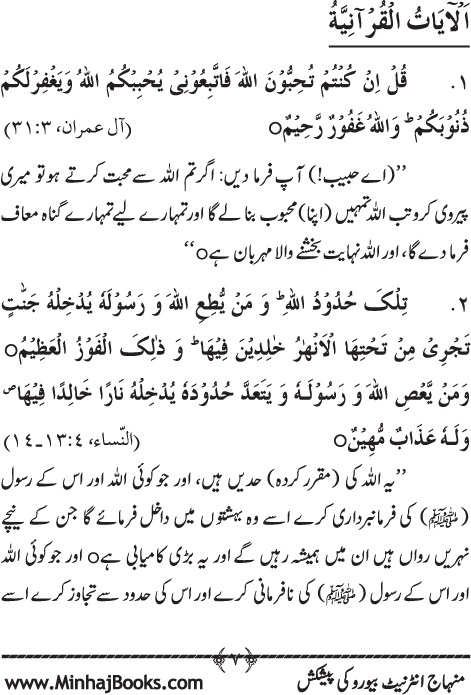 اَلْآيَاتُ الْقُرْآنِيَّةُ
١. قُلْ اِنْ كُنْتُمْ تُحِبُّوْنَ اللهَ فَاتَّبِعُوْنِیْ يُحْبِبْكُمُ اللهُ وَيَغْفِرْلَكُمْ
ذُنُوْبَكُمْ ؕ وَاللهُ غَفُوْرٌ رَّحِيْمٌo (آل عمران، ٣:٣١)
’’(اے حبیب!) آپ فرما دیں: اگر تم اللہ سے محبت کرتے ہو تو میری
پیروی کرو تب اللہ تمہیں (اپنا) محبوب بنا لے گا اور تمہارے لیے تمہارے گناہ معاف
فرما دے گا، اور اللہ نہایت بخشنے والا مہربان ہےo‘‘
٢. تِلْکَ حُدُوْدُ اللهِ ؕ وَ مَنْ يُّطِعِ اللهَ وَ رَسُوْلَهٗ يُدْخِلْهُ جَنّٰتٍ
تَجْرِیْ مِنْ تَحْتِهَا الْاَنْهٰرُ خٰلِدِيْنَ فِيْهَا ؕ وَ ذٰلِکَ الْفَوْزُ الْعَظِيْمُo
وَمَنْ يَّعْصِ اللهَ وَ رَسُوْلَهٗ وَ يَتَعَدَّ حُدُوْدَهٗ يُدْخِلْهُ نَارًا خَالِدًا فِيْهَا ص
وَلَهٗ عَذَابٌ مُّهِيْنٌo (النّساء، ٤:١٣ـ١٤)
’’یہ اللہ کی (مقرر کردہ) حدیں ہیں، اور جو کوئی اللہ اور اس کے رسول
(ﷺ) کی فرمانبرداری کرے اسے وہ بہشتوں میں داخل فرمائے گا جن کے نیچے
نہریں رواں ہیں ان میں ہمیشہ رہیں گے اور یہ بڑی کامیابی ہےo اور جو کوئی اللہ
اور اس کے رسول (ﷺ) کی نافرمانی کرے اور اس کی حدود سے تجاوز کرے اسے
﴿٧﴾
منہاج انٹرنیٹ بیورو کی پیشکش www.MinhajBooks.com